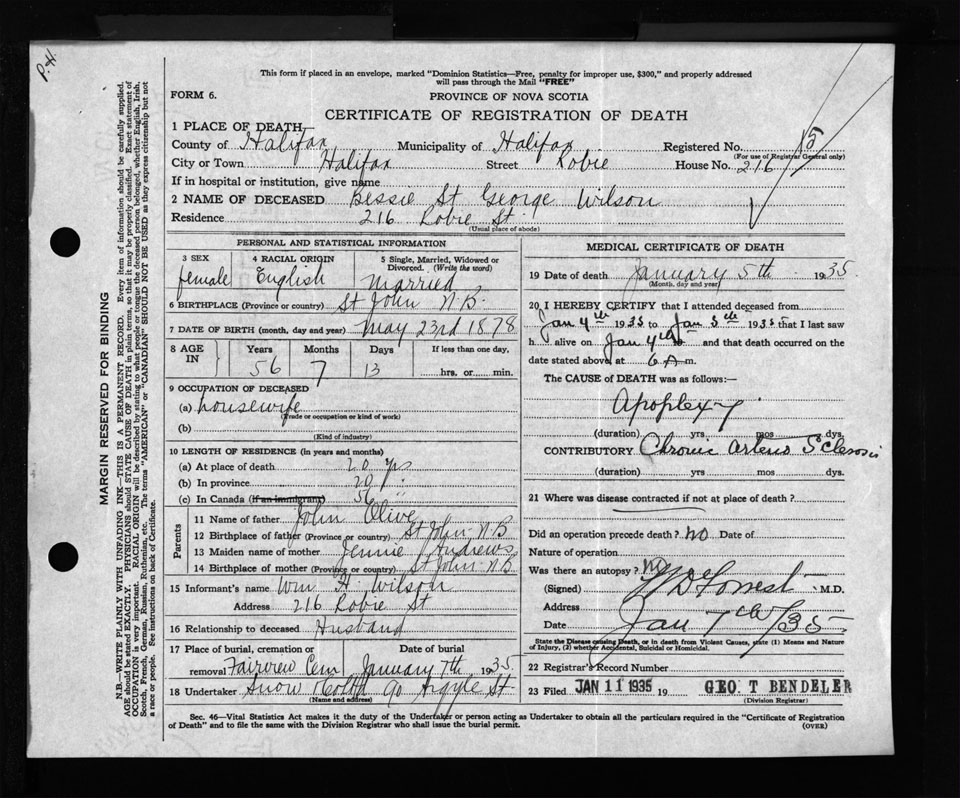 P.H.
This form if placed in an envelope, marked "Dominion Statistics—Free, penalty for improper use, $300," and properly addressed
will pass through the Mail "FREE"
FORM 6.
PROVINCE OF NOVA SCOTIA
CERTIFICATE OF REGISTRATION OF DEATH
1 PLACE OF DEATH—
County of Halifax Municipality of Halifax Registered No. 15
(For use of Registrar General only)
City or Town Halifax Street Robie House No. 216
If in hospital or institution, give name
2 NAME OF DECEASED Bessie St George Wilson
Residence 216 Robie St
(Usual place of abode)
PERSONAL AND STATISTICAL INFORMATION
3 SEX 4 RACIAL ORIGIN 5 Single, Married, Widowed or
Divorced. (Write the word)
female English Married
6 BIRTHPLACE (Province or country) St John N B.
7 DATE OF BIRTH (month, day and year) May 23rd 1878
8 AGE IN Years Months Days If less than one day,
56 7 13 hrs. or min.
9 OCCUPATION OF DECEASED
(a) housewife
(Trade or occupation or kind of work)
(b)
(Kind of industry)
10 LENGTH OF RESIDENCE (in years and months)
(a) At place of death 20 yrs
(b) In province 20 "
(c) In Canada (If an immigrant) 56 "
Parents
11 Name of father John Olive
12 Birthplace of father (Province or country) St John N B
13 Maiden name of mother Jennie Andrews
14 Birthplace of mother (Province or country) St John N B
15 Informant's name Wm H. Wilson
Address 216 Robie St
16 Relationship to deceased Husband
17 Place of burial, cremation or Date of burial
removal Fairview Cem January 7th 1935
18 Undertaker Snow & Co Ltd 90 Argyle St
(Name and address)
MEDICAL CERTIFICATE OF DEATH
19 Date of death January 5th 1935
(Month, day and year)
20 I HEREBY CERTIFY that I attended deceased from
Jan 4th 1935 to Jan 5th 1935 that I last saw
h alive on Jan 4th and that death occurred on the
date stated above at 6 A m.
The CAUSE of DEATH was as follows:—
Apoplexy
(duration) yrs mos dys.
CONTRIBUTORY Chronic Arterio Sclerosis
(duration) yrs mos dys.
21 Where was disease contracted if not at place of death?
Did an operation precede death? no Date of
Nature of operation
Was there an autopsy? no
(Signed) Forrest M.D.
Address
Date Jan 7th/35
State the Disease causing Death, or in death from Violent Causes, state (1) Means and Nature
of Injury, (2) whether Accidental, Suicidal or Homicidal.
22 Registrar's Record Number
23 Filed JAN 11 1935 19 GEO. T BENDELER
(Division Registrar)
Sec. 46—Vital Statistics Act makes it the duty of the Undertaker or person acting as Undertaker to obtain all the particulars required in the "Certificate of Registration
of Death" and to file the same with the Division Registrar who shall issue the burial permit. (OVER)
MARGIN RESERVED FOR BINDING
N.B.—WRITE PLAINLY WITH UNFADING INK—THIS IS A PERMANENT RECORD. Every item of information should be carefully supplied.
AGE should be stated EXACTLY. PHYSICIANS should STATE CAUSE OF DEATH in plain terms, so that it may be properly classified. Exact statement of
OCCUPATION is very important. RACIAL ORIGIN will be described by stating to what people or tongue the deceased person belonged, whether English, Irish,
Scotch, French, German, Russian, Ruthenian, etc. The terms "AMERICAN" or "CANADIAN" SHOULD NOT BE USED as they express citizenship but not
a race or people. See instructions on back of Certificate.